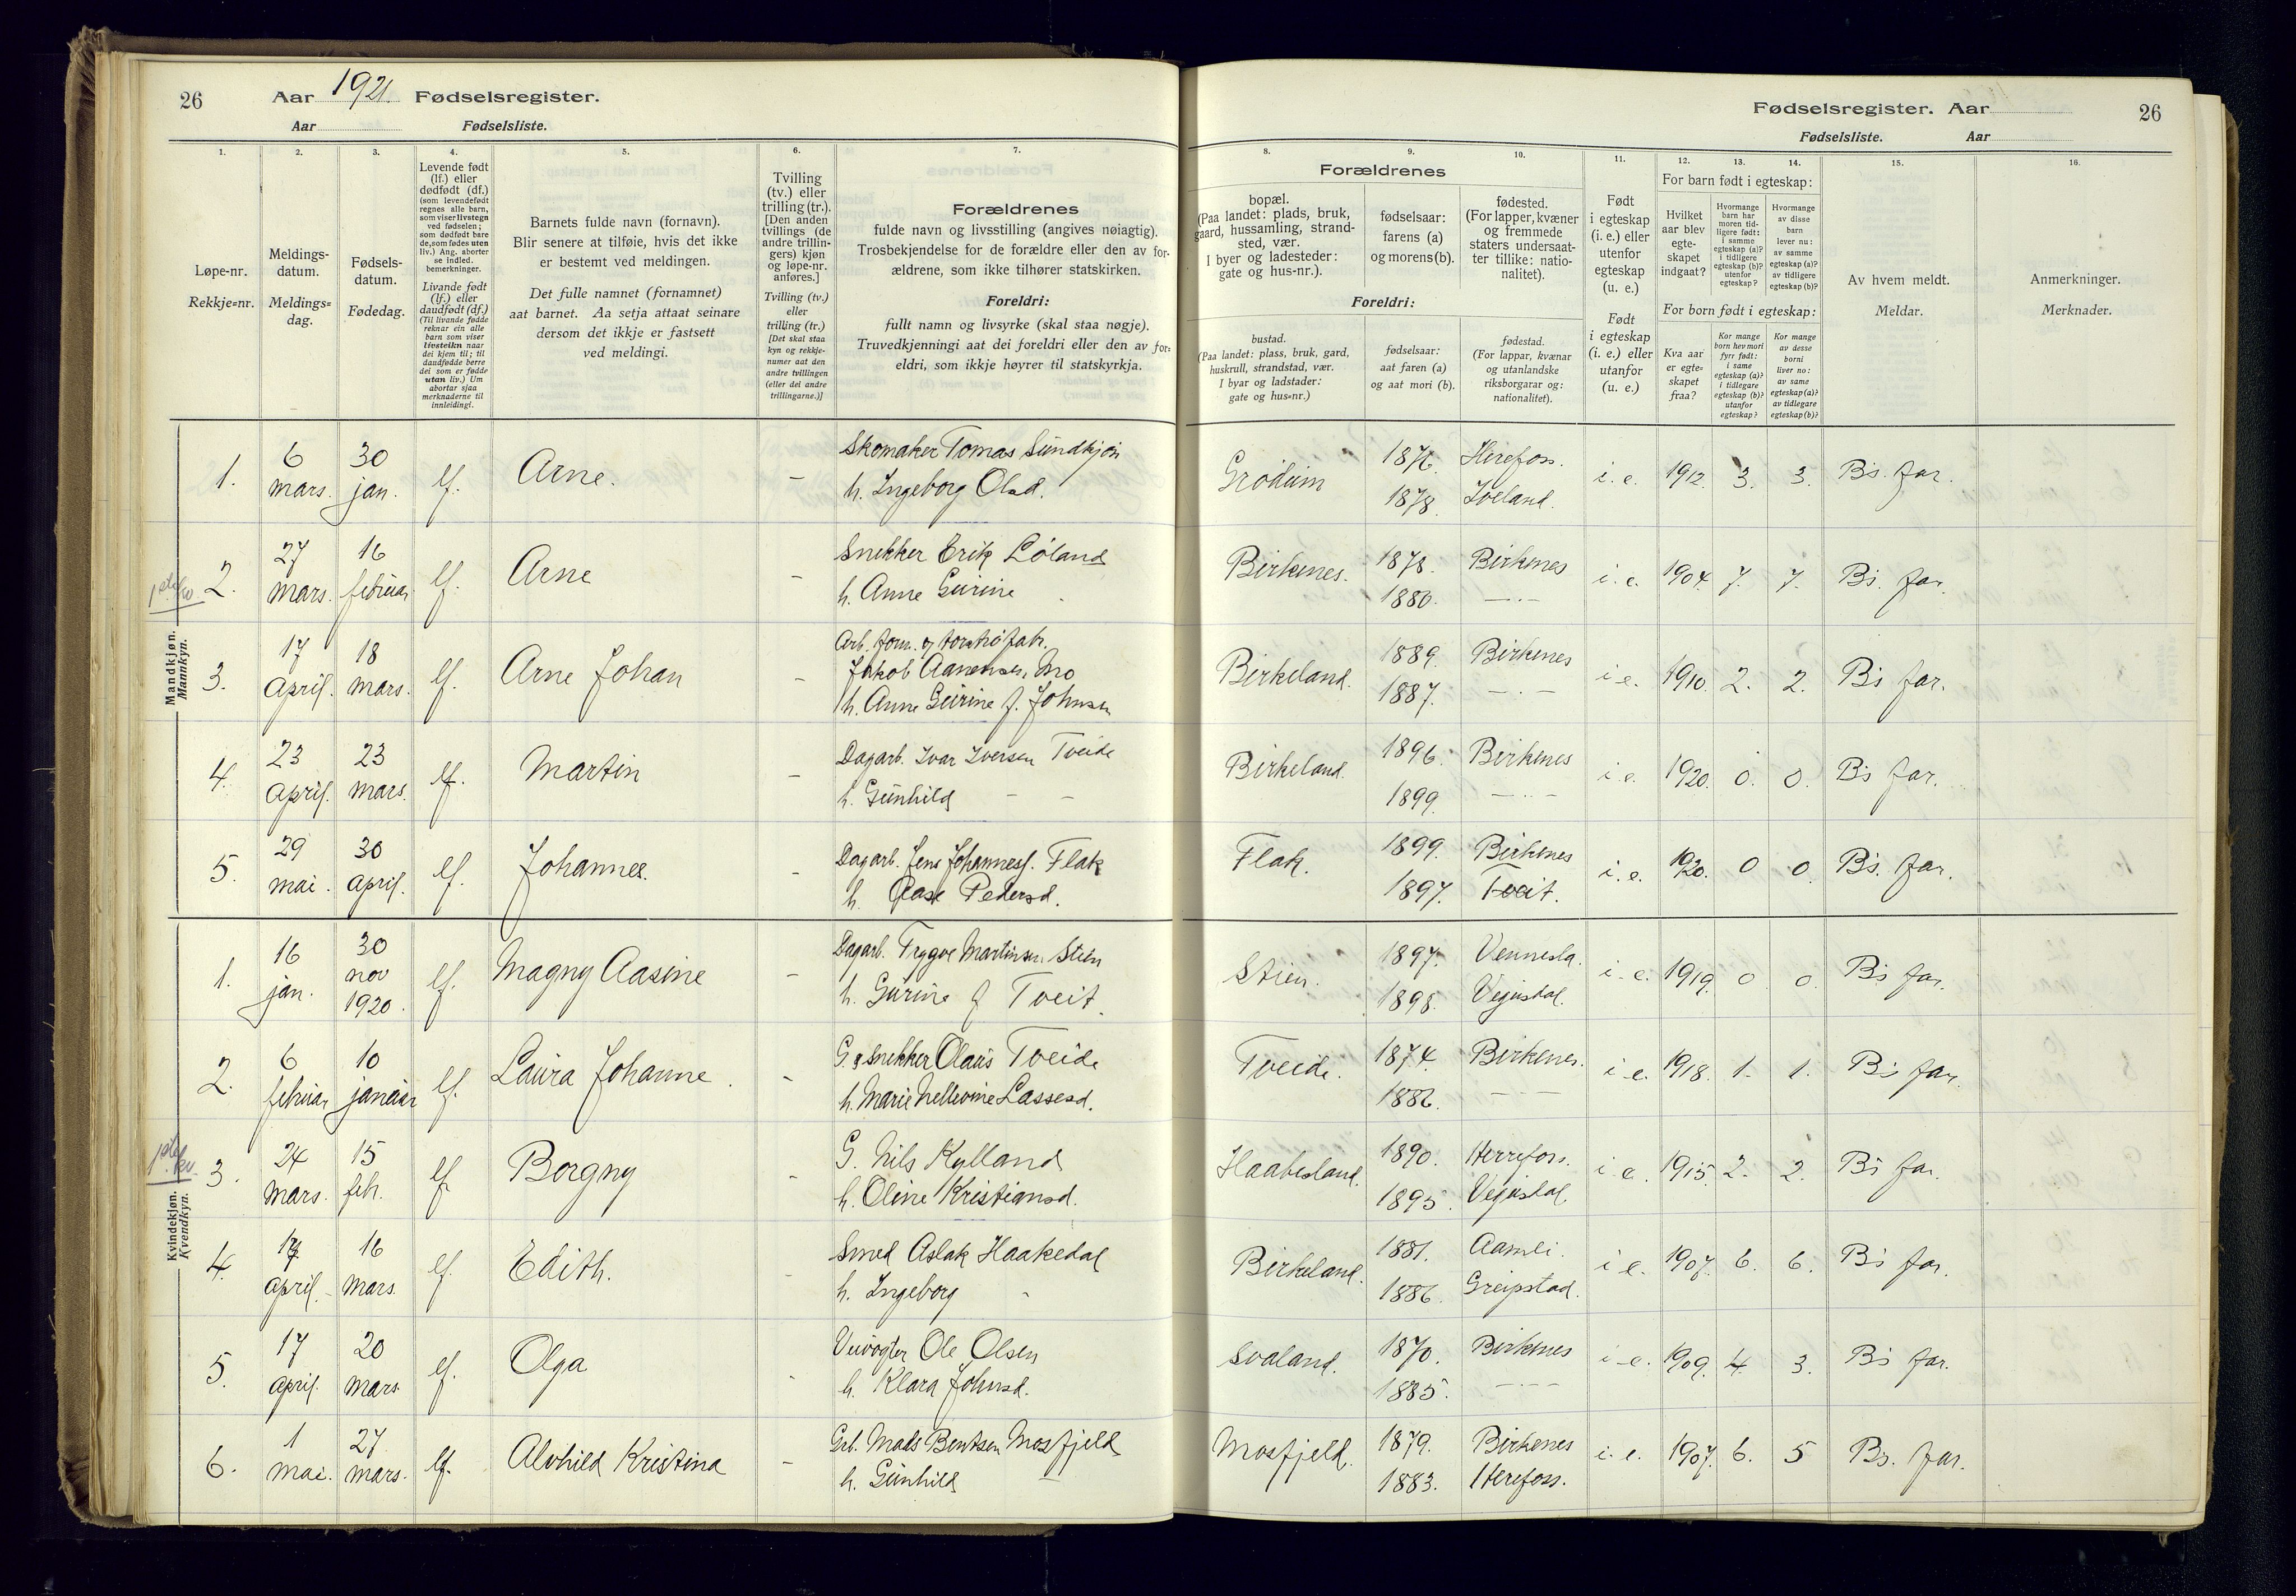 26
Aar 1921. Fødselsregister.
Aar Fødselsliste.
1.
Løpe-nr.
Rekkje=nr.
2.
Meldings-
datum.
Meldings=
dag.
3.
Fødsels-
datum.
Fødedag.
4.
Levende født
(lf.) eller
dødfødt (df.)
(som levendefødt
regnes alle barn,
som viser livstegn
ved fødselen;
som dødfødt bare
de, som fødes uten
liv.) Ang. aborter
se indled.
bemerkninger.
Livande født
(lf.) eller
daudfødt (df.)
(Til livande fødde
reknar ein alle
barn som viser
livsteikn naar
dei kjem til; til
daudfødde berre
dei som er fødde
utan liv.) Um
abortar sjaa
merknaderne til
innleidingi.
5.
Barnets fulde navn (fornavn).
Blir senere at tilføie, hvis det ikke
er bestemt ved meldingen.
Det fulle namnet (fornamnet)
aat barnet. Aa setja attaat seinare
dersom det ikkje er fastsett
ved meldingi.
6.
Tvilling
(tv.) eller
trilling (tr.).
[Den anden
tvillings (de
andre trillin-
gers) kjøn
og løpe-nr.
anføres.]
Tvilling (tv.)
eller
trilling (tr.)
[Det skal staa
kyn og rekkje-
numer aat den
andre tvillingen
(eller dei andre
trillingarne.)]
7.
Forældrenes
fulde navn og livsstilling (angives nøiagtig).
Trosbekjendelse for de forældre eller den av for-
ældrene, som ikke tilhører statskirken.
Foreldri:
fullt namn og livsyrke (skal staa nøgje).
Truvedkjenningi aat dei foreldri eller den av for-
eldri, som ikkje høyrer til statskyrkja.
Mandkjøn.
Mannkyn.
1. 6 mars. 30 jan. lf. Arne. - Skomaker Tomas Sundkjøn
h. Ingeborg Olsd.
1ste kv.
2. 27 mars. 16 februar lf. Arne - Snekker Erik Løland
h. Anne Gurine
3. 17 April. 18 mars. lf. Arne Johan -
Jakob Aanensen Mo
h. Anne Gurine f. Johnsen
4. 23 April. 23 mars. lf. Martin - Dagarb. Ivar Iversen Tveide
h. Gunhild - -
5. 29 mai. 30 April. lf. Johannes. - Dagarb. Jens Johannesf. Flak
h. Aase Pedersd.
Kvindekjøn.
Kvendkyn.
1. 16 jan. 30 nov 1920. lf. Magny Aasine - Dagarb. Trygve Martinsen Stien
h. Gurine f Tveit.
2. 6 februar 10 januar lf. Laura Johanne. - G. & Snekker Olaus Tveide
h. Marie Nellevine Lassesd.
1ste kv.
3. 24 mars. 15 feb. lf Borgny - G. Nils Kylland
h. Oline Kristiansd.
4. 17 April. 16 mars. lf. Edith. - Smed Aslak Haakedal
h. Ingeborg -
5. 17 April. 20 mars. lf. Olga - Veivogter Ole Olsen
h. Klara Johnsd.
6. 1 mai. 27 mars. lf. Alvhild Kristina - Grb. Mads Bentsen Mosfjeld
h. Gunhild -
Fødselsregister. Aar
26
Fødselsliste. Aar
Forældrenes
8.
bopæl.
(Paa landet: plads, bruk,
gaard, hussamling, strand-
sted, vær.
I byer og ladesteder:
gate og hus-nr.).
9.
fødselsaar:
farens (a)
og morens (b).
10.
fødested.
(For lapper, kvæner
og fremmede
staters undersaat-
ter tillike: natio-
nalitet).
Foreldri:
bustad.
(Paa landet: plass, bruk, gard,
huskrull, strandstad, vær.
I byar og ladstader:
gate og hus=nr.)
fødselsaar:
aat faren (a)
og aat mori (b).
fødestad.
(For lappar, kvænar
og utanlandske
riksborgarar og:
nationalitet).
11.
Født
i egteskap
(i. e.) eller
utenfor
egteskap
(u. e.)
Født
i egteskap
(i. e.) eller
utanfor
(u. e.)
12. 13. 14.
For barn født i egteskap:
Hvilket
aar blev
egte-
skapet
indgaat?
Hvormange
barn har
moren tid-
ligere født:
i samme
egteskap (a)?
i tidligere
egteskap (b)?
utenfor
egteskap?
Hvormange
av disse
barn
lever nu:
av samme
egteskap (a)?
av tidligere
egteskap (b)?
For born født i egteskap:
Kva aar
er egte-
skapet
fraa?
Kor mange
born hev mori
fyrr født:
i same
egteskap (a)?
i tidlegare
egteskap (b)?
utanfor
egteskap?
Kor mange
av desse
borni
liver no:
av same
egteskap (a)?
av tidlegare
egteskap (b)?
15.
Av hvem meldt.
Meldar.
16.
Anmerkninger.
Merknader.
Grødum 1876. Herefoss. i. e. 1912. 3. 3. B's. far.
1878. Iveland.
Birkenes. 1878. Birkenes i. e. 1904. 7. 7. B's. far.
1880. -·-
Birkeland. 1889. Birkenes i e. 1910. 2. 2. B's far.
1887. -·-
Birkeland. 1896. Birkenes i e. 1920. 0. 0. B's far.
1899. -·-
Flak. 1899. Birkenes i. e. 1920. 0 0. B's. far.
1897. Tveit.
Stien. 1897. Vennesla. i e. 1919. 0 0. B's far.
1898. Vegusdal.
Tveide. 1874. Birkenes. i e. 1918. 1. 1. B's far.
1886. - - -
Haabesland. 1890. Herrefoss. i e. 1915 2. 2. B's far.
1895. Vegusdal.
Birkeland. 1881. Aamli. i e. 1907. 6. 6. B's far.
1886. Greipstad.
Svaland. 1870. Birkenes i e. 1909. 4. 3. B's far.
1885. -·-
Mosfjeld. 1879. Birkenes i. e. 1907. 6. 5 B's. far.
1883. Herefoss.